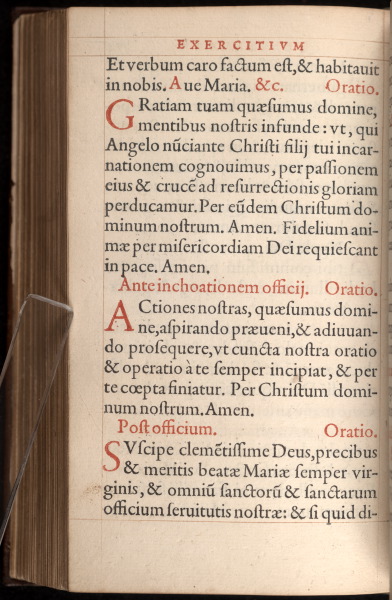 EXERCITIVM
Et verbum caro factum eſt, & habitauit
in nobis. Aue Maria. &c. Oratio.
GRatiam tuam quæſumus domine,
mentibus noſtris infunde: vt, qui
Angelo nūciante Chriſti filij tui incar-
nationem cognouimus, per paſſionem
eius & crucē ad reſurrectionis gloriam
perducamur. Per eūdem Chriſtum do-
minum noſtrum. Amen. Fidelium ani-
mæ per miſericordiam Dei requieſcant
in pace. Amen.
Ante inchoationem officij. Oratio.
ACtiones noſtras, quæſumus domi-
ne, aſpirando præueni, & adiuuan-
do proſequere, vt cuncta noſtra oratio
& operatio à te ſemper incipiat, & per
te cœpta finiatur. Per Chriſtum domi-
num noſtrum. Amen.
Poſt officium. Oratio.
SVſcipe clemētiſſime Deus, precibus
& meritis beatæ Mariæ ſemper vir-
ginis, & omniū ſanctorū & ſanctarum
officium ſeruitutis noſtræ: & ſi quid di-